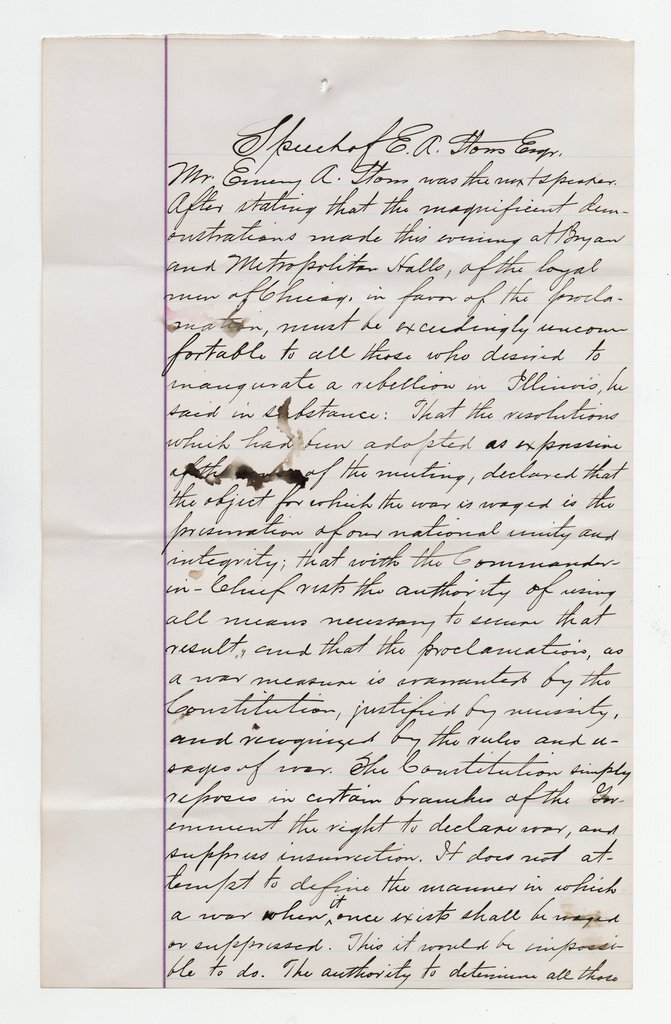 Speech of E. A. Storrs Esqr.
Mr. Emery A. Storrs was the next speaker.
After stating that the magnificent dem-
onstrations made this evening at Bryan
and Metropolitan Halls, of the loyal
men of Chicago, in favor of the procla-
mation, must be exceedingly uncom-
fortable to all those who desired to
inaugurate a rebellion in Illinois, he
said in substance: That the resolutions
which had been adopted as expressive
of the of the meeting, declared that
the object for which the war is waged is the
preservation of our national unity and
integrity; that with the Commander-
in-Chief rests the authority of using
all means necessary to secure that
result, and that the proclamation, as
a war measure is warranted by the
Constitution, justified by necessity,
and recognized by the rules and u-
sages of war. The Constitution simply
reposes in certain branches of the Gov-
ernment the right to declare war, and
suppress insurrection. It does not at-
tempt to define the manner in which
a war when it once exists shall be waged
or suppressed. This it would be impossi-
ble to do. The authority to determine all those